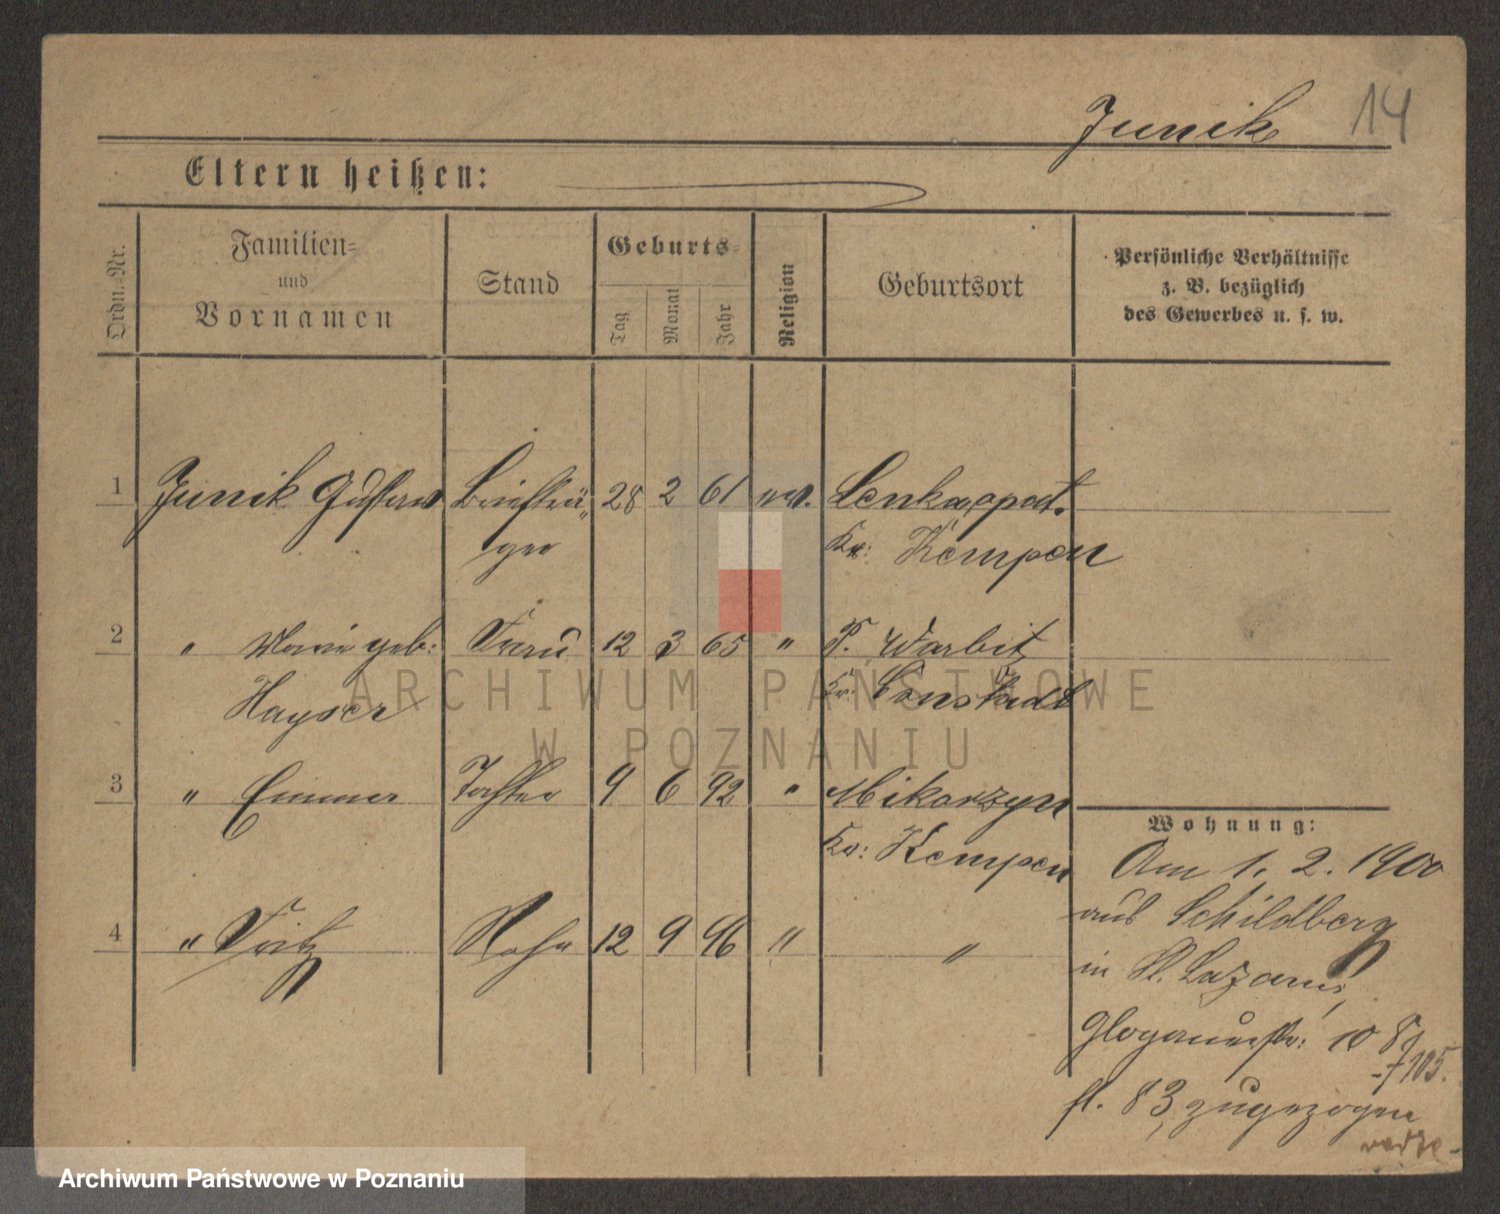 Junik 14
Eltern heißen:
Ordn.-Nr.
Familien-
und
Vornamen
Stand
Geburts-
Tag
Monat
Jahr
Religion
Geburtsort
Persönliche Verhältnisse
z. B. bezüglich
des Gewerbes u. s. w.
1 Junik Gustav Briefträ- 28 2 61 ev.
ger Kr: Kempen
2 " Marie geb: Frau 12 3 65 " P. Warbitz
Hayser Kr:
3 " Emma Tochter 9 6 92 " Mikorzyn
Kr: Kempen
4 " Fritz Sohn 12 9 96 " "
Wohnung:
Am 1. 2. 1900
aus Schildberg
in St. Lazarus,
Glogauerstr: 10
105.
fl. 83, zugezogen
ARCHIWUM PAŃSTWOWE
W POZNANIU
Archiwum Państwowe w Poznaniu